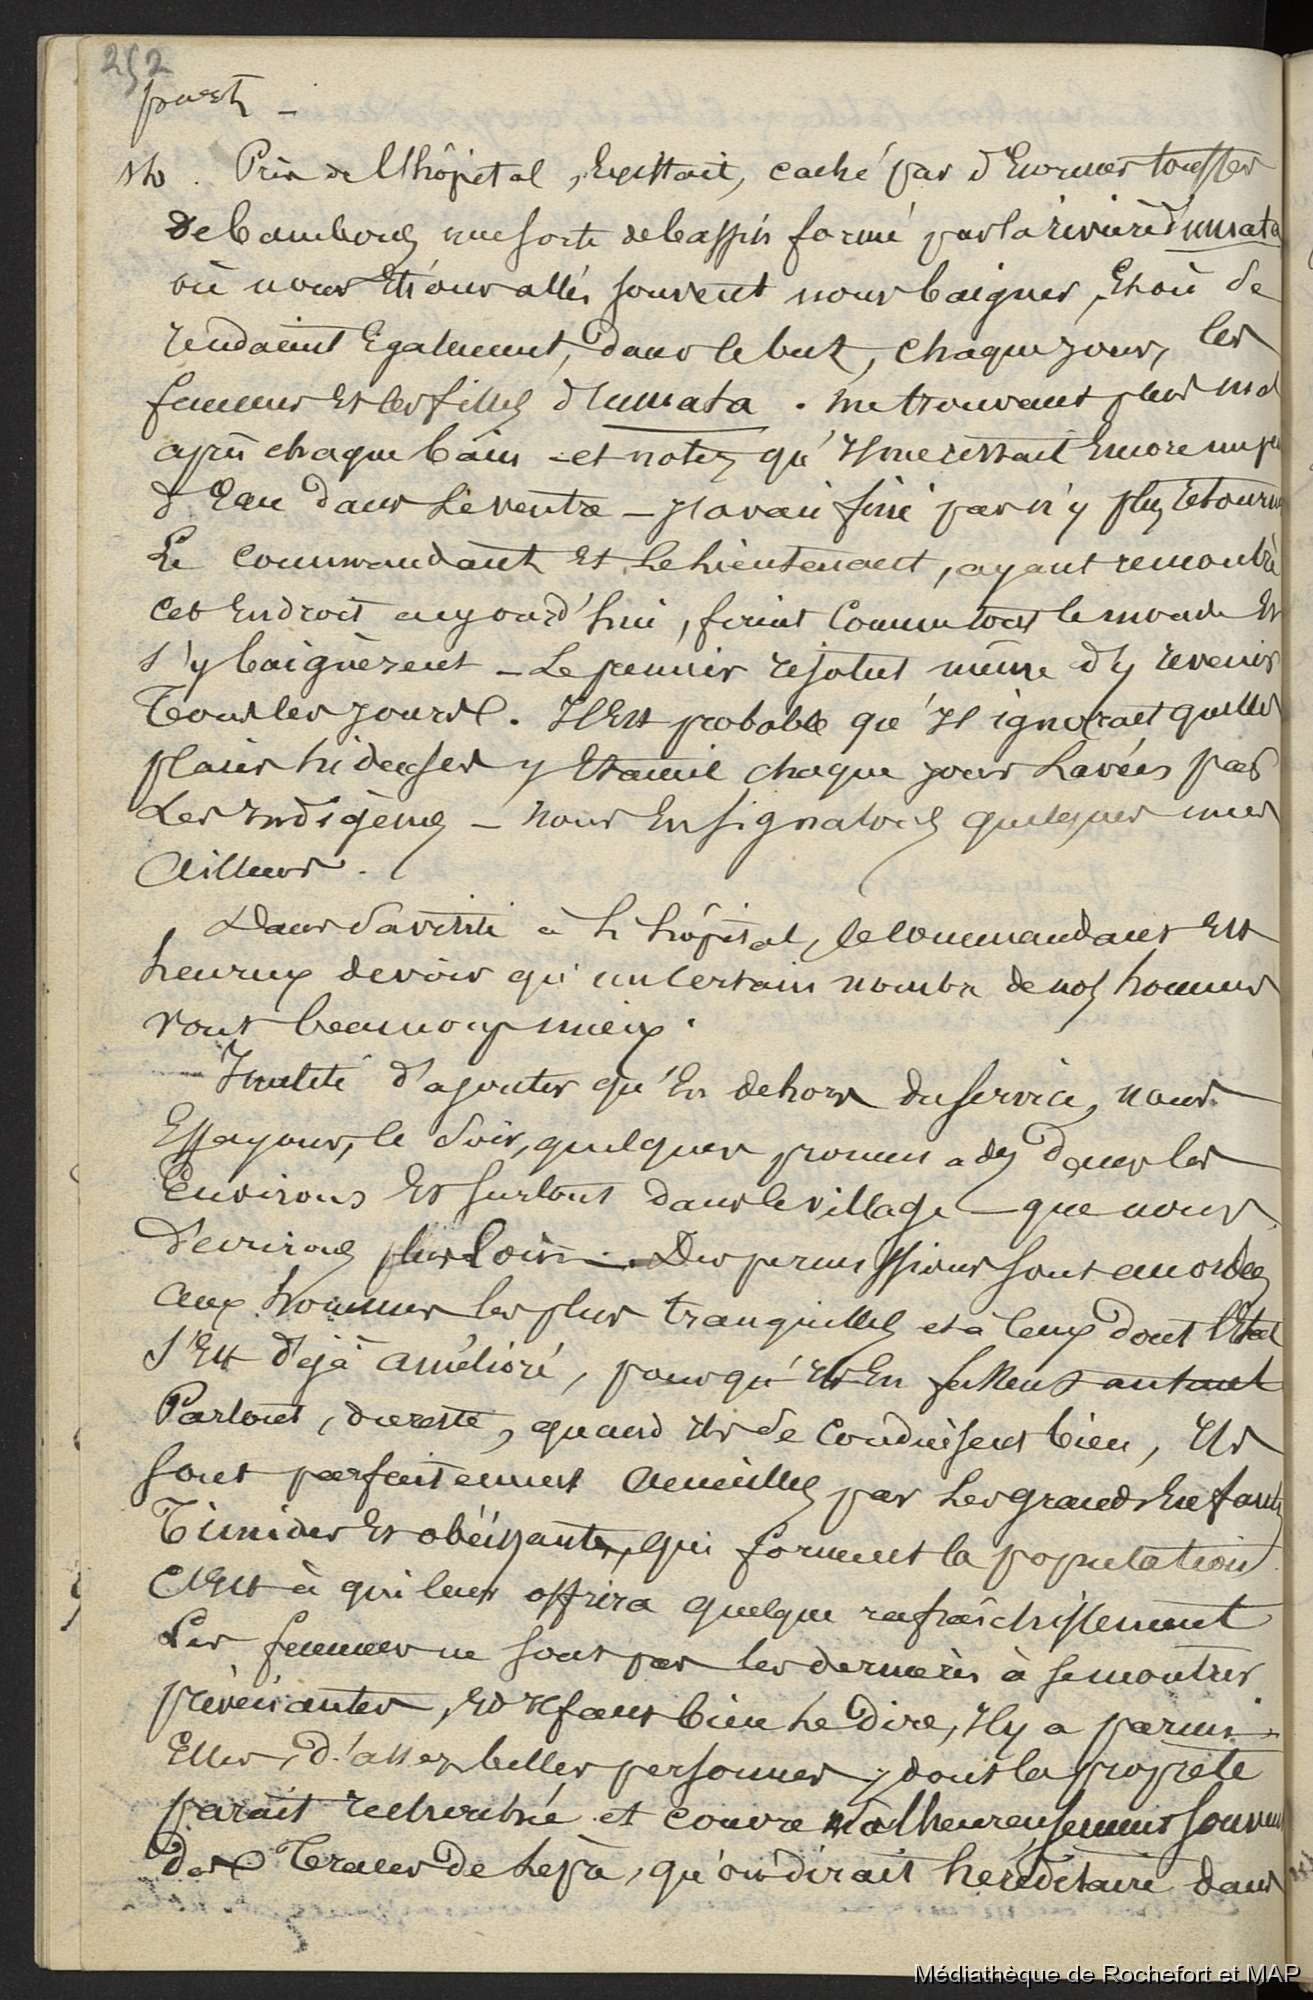 252
Près de l'hôpital, Existait, caché par d'Enormes touffes
de bambous une sorte de bassin formé par la rivière d'Umata
où nous Etions allés souvent nous baigner, Et où se
rendaient Egalement, dans le but, chaque jour, les
femmes Et les filles d'Umata. Me trouvant plus mal
après chaque bain - et notez qu'Il me restait Encore un peu
d'Eau dans le ventre - J'avais fini par n'y plus retourner
Le Commandant Et le Lieutenant, ayant rencontré
cet Endroit aujourd'hui, firent Comme tout le monde Et
s'y baignèrent - Le premier résolut même d'y revenir
Tous les jours. Il Est probable qu'Il ignorait quelles
plaies hideuses y Etaient chaque jour Lavées par
Les Indigènes - Nous En signalons quelques unes
Ailleurs.
Dans sa visite à L'hôpital, le Commandant Est
heureux de voir qu'un certain nombre de nos hommes
vont beaucoup mieux.
Inutile d'ajouter qu'En dehors du service, nous
Essayons, le Soir, quelques promenades dans les
Environs Et surtout dans le village - que nous
décrirons plus loin. Des permissions sont accordées
Aux hommes les plus tranquilles et à ceux dont l'Etat
s'Est déjà amélioré, pour qu'Ils En fassent autant
Partout, du reste, quand ils se conduisent bien, Ils
sont parfaitement accueillis par Les grands Enfants
Timides Et obéissants, qui forment la population
C'Est à qui leur offrira quelque rafraîchissement
Les femmes ne sont pas les dernières à se montrer
prévenantes, Et Il faut bien Le dire, Il y a parmi
Elles, d'assez belles personnes, dont la propreté
paraît recherchée et couvre malheureusement souvent
des Traces de Lèpre, qu'on dirait héréditaire dans
Médiathèque de Rochefort et MAP